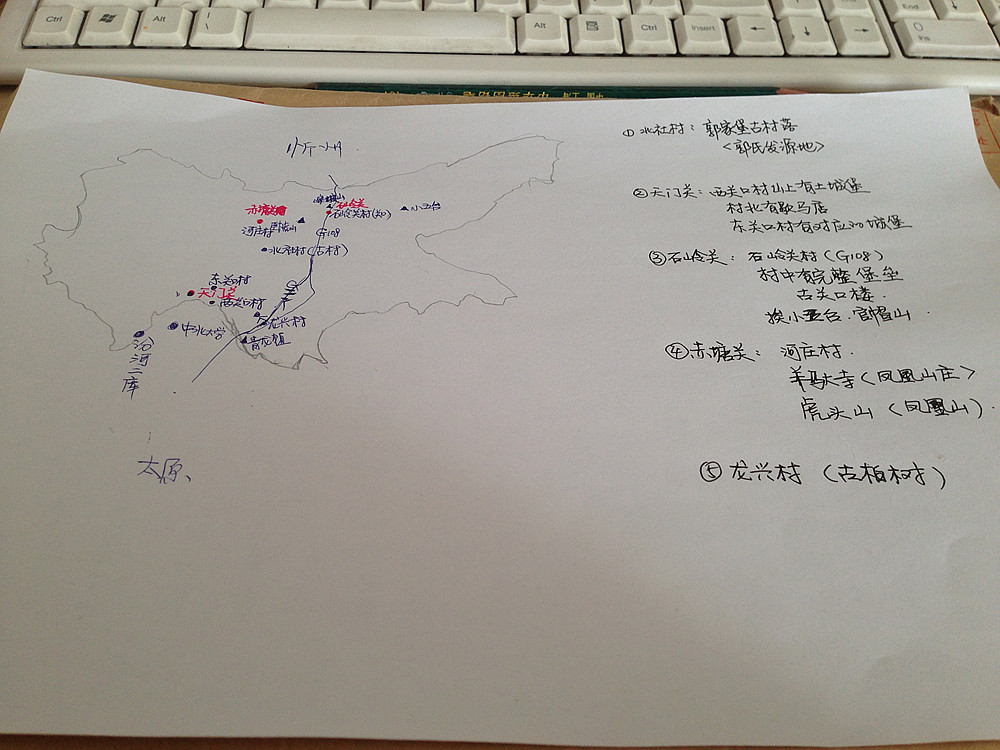 Ctrl
Alt
Alt
Ctrl
Insert
End
End
0
Ins
忻州
赤塘关
石岭关
石岭关村(知)
小五台
河庄村
G108
北社村(古村)
东关口村
天门关
西关口村
中北大学
龙兴村
青龙镇
汾河二库
太原、
①北社村：郭家堡古村落
<郭氏发源地>
②天门关：西关口村山上有土城堡
村北有歇马店
东关口村有对应的城堡
③石岭关：石岭关村(G108)
村中有完整堡垒
古关口楼.
挨小五台.官帽山.
④赤塘关：河庄村.
羊驮寺(凤凰山庄>
虎头山(凤凰山).
⑤龙兴村(古柏树)